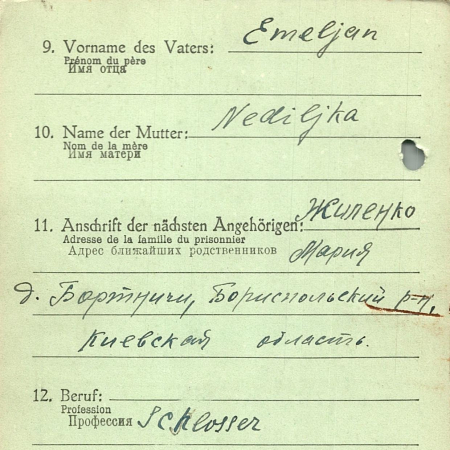 9. Vorname des Vaters: Emeljan
Prénom du père
Имя отца
10. Name der Mutter: Nediljka
Nom de la mère
Имя матери
11. Anschrift der nächsten Angehörigen: Жиленко
Adresse de la famille du prisonnier Мария
Адрес ближайших родственников
д. Бортничи, Бориспольский р-н,
Киевская область.
12. Beruf:
Profession
Профессия Schlosser